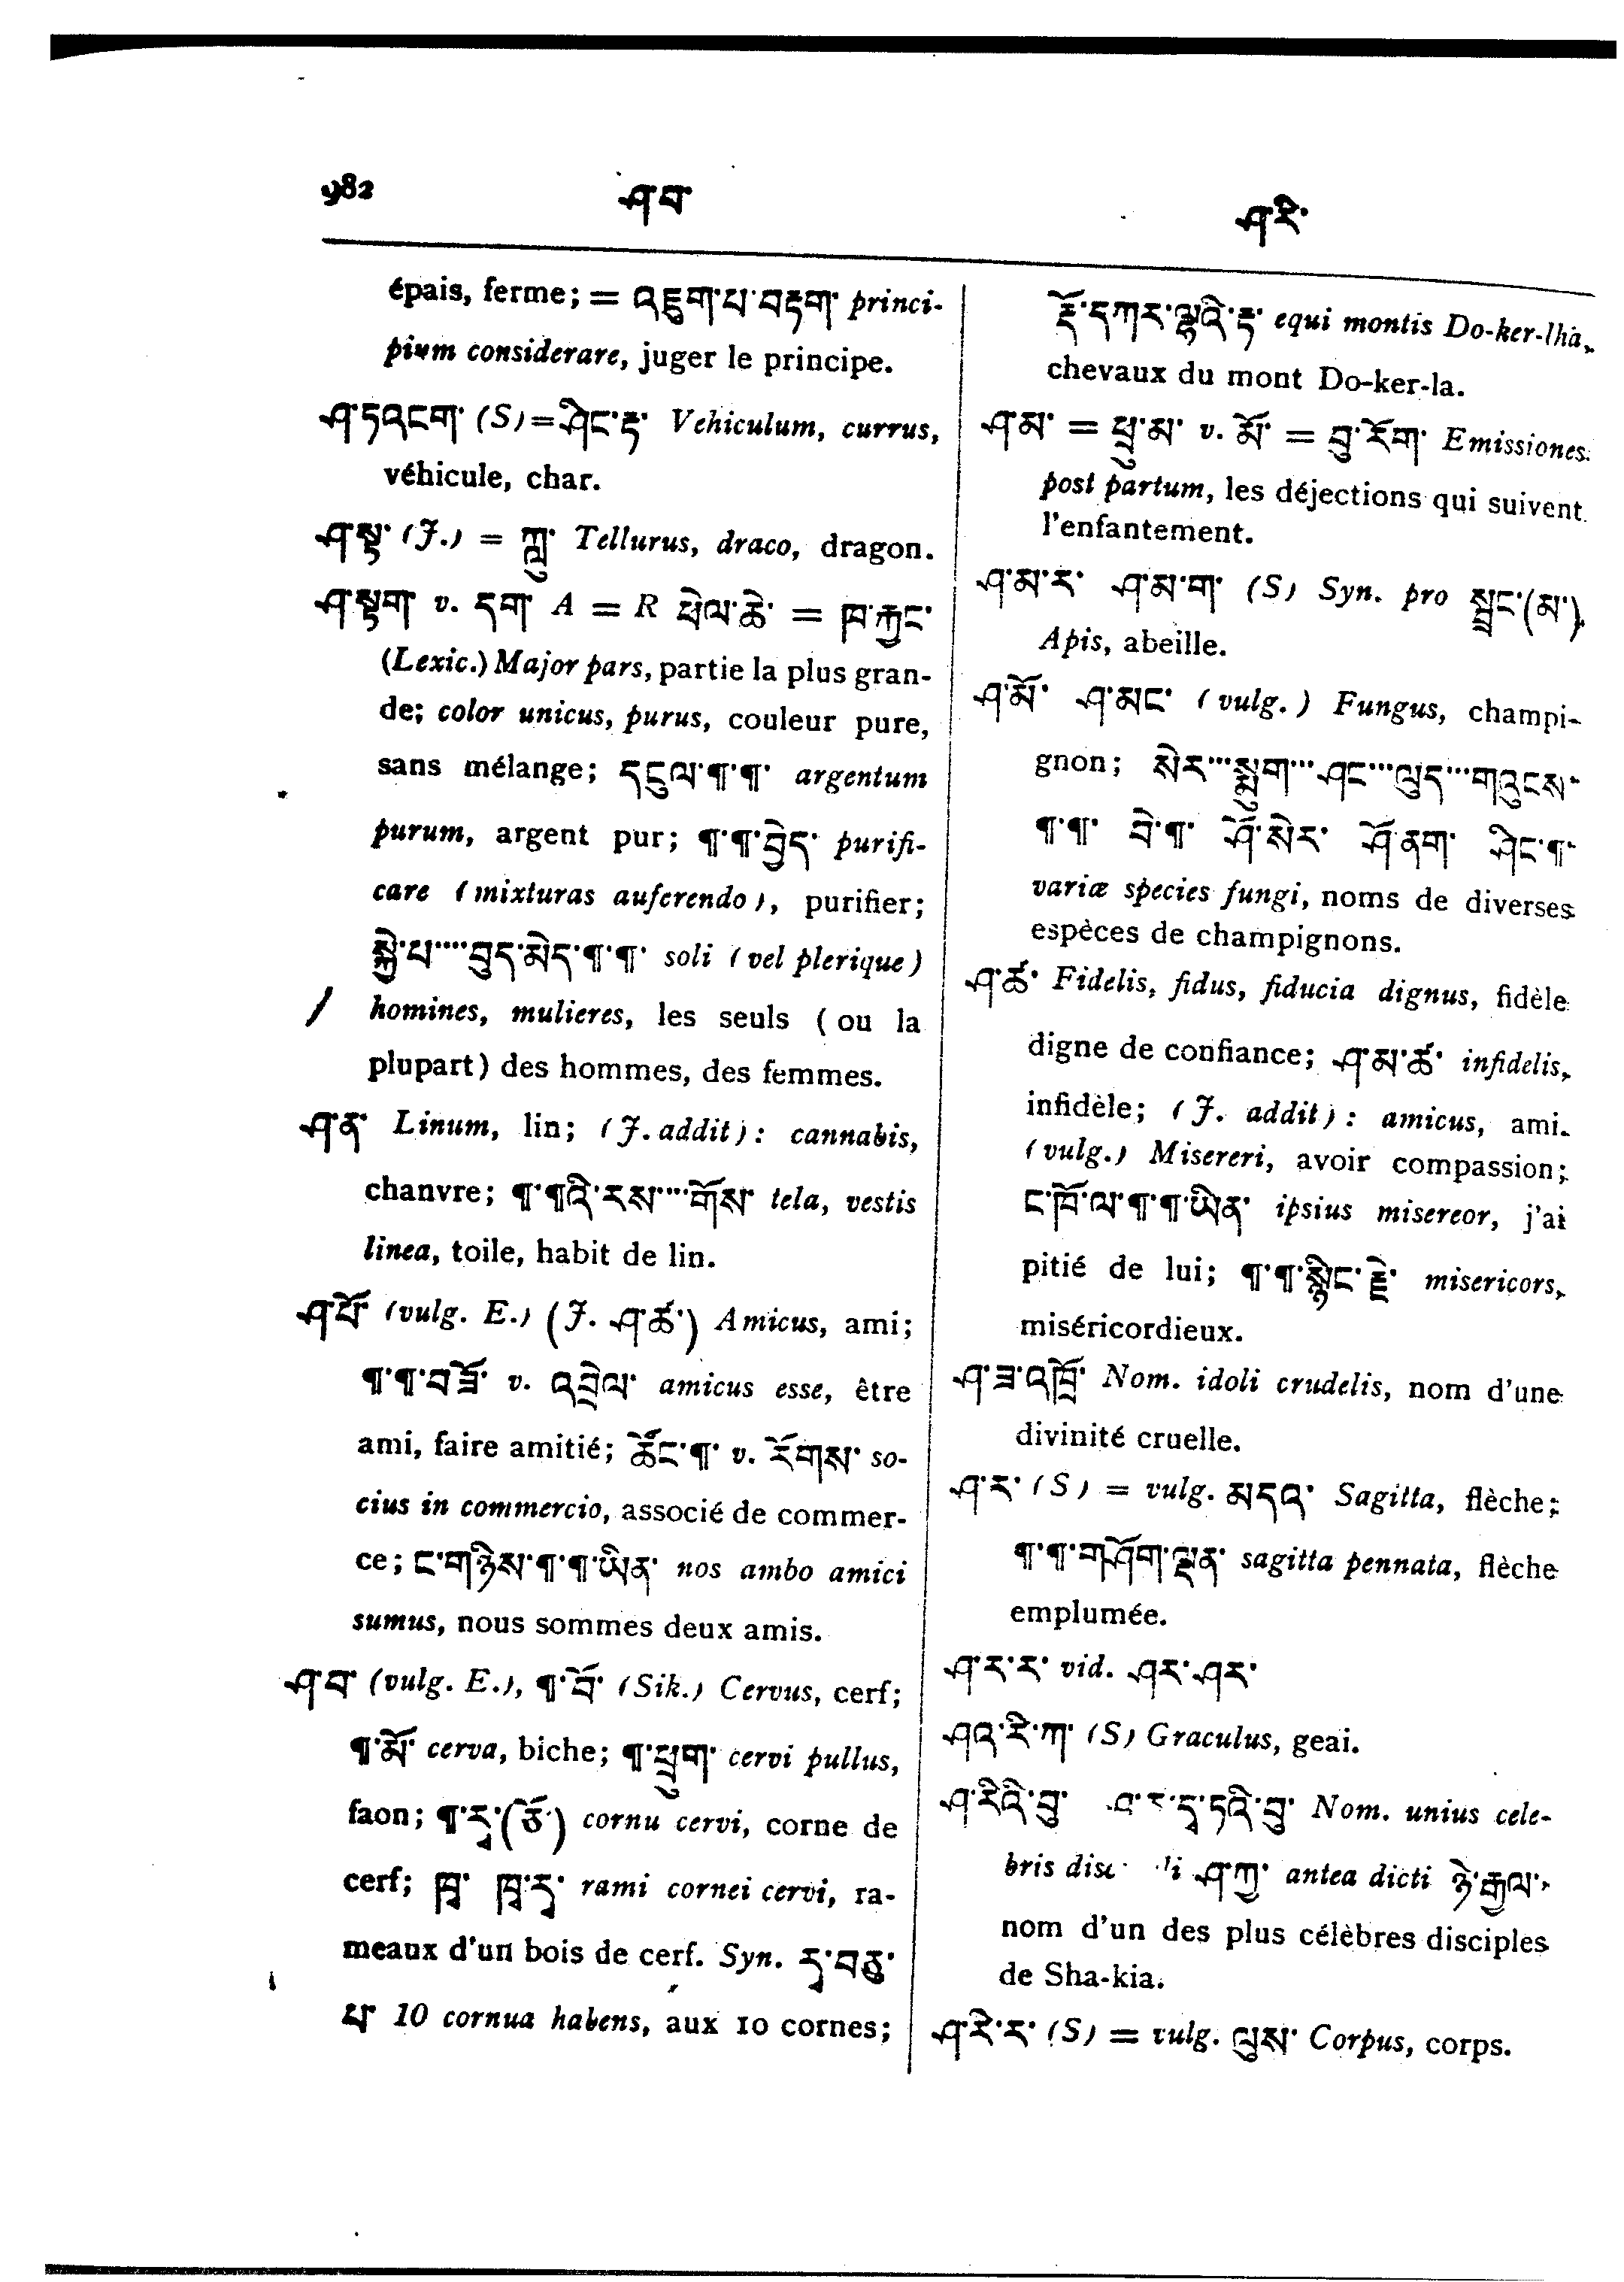 982
ཤ་བ་
ཤ་རི་
épais, ferme; = འཇུག་པ་བརྟག་ princi-
pium considerare, juger le principe.
ཤ་ཏའངག་ (S) = ཤིང་རྟ་ Vehiculum, currus,
véhicule, char.
ཤ་སྟ་ (J.) = ཀླུ་ Tellurus, draco, dragon.
ཤ་སྟག་ v. དག་ A = R ཕེལ་ཆེ་ = ཁ་རྐྱང་
(Lexic.) Major pars, partie la plus gran-
de; color unicus, purus, couleur pure,
sans mélange; དངུལ་¶་¶་ argentum
purum, argent pur; ¶་¶་བྱེད་ purifi-
care (mixturas auferendo), purifier;
སྐྱེ་པ་····བུད་མེད་¶་¶་ soli (vel plerique)
homines, mulieres, les seuls (ou la
plupart) des hommes, des femmes.
ཤ་ན་ Linum, lin; (J. addit): cannabis,
chanvre; ¶་¶འི་རས་····གོས་ tela, vestis
linea, toile, habit de lin.
ཤ་པོ་ (vulg. E.) (J. ཤ་ཚ་) Amicus, ami;
¶་¶་བཟོ་ v. འབྲེལ་ amicus esse, être
ami, faire amitié; ཚོང་¶་ v. རོགས་ so-
cius in commercio, associé de commer-
ce; ང་གཉིས་¶་¶་ཡིན་ nos ambo amici
sumus, nous sommes deux amis.
ཤ་བ་ (vulg. E.), ¶་བོ་ (Sik.) Cervus, cerf;
¶་མོ་ cerva, biche; ¶་ཕྲུག་ cervi pullus,
faon; ¶་རྭ་(ཅོ་) cornu cervi, corne de
cerf; ཁྭ་ ཁྭ་རྭ་ rami cornei cervi, ra-
meaux d'un bois de cerf. Syn. རྭ་བཅུ་
པ་ 10 cornua habens, aux 10 cornes;
རྡོ་དཀར་ལྷའི་རྟ་ equi montis Do-ker-lha,
chevaux du mont Do-ker-la.
ཤ་མ་ = ཕྲུ་མ་ v. མོ་ = བུ་རོག་ Emissiones
post partum, les déjections qui suivent
l'enfantement.
ཤ་མ་ར་ ཤ་མ་ག་ (S) Syn. pro སྦྲང་(མ་)
Apis, abeille.
ཤ་མོ་ ཤ་མང་ (vulg.) Fungus, champi-
gnon; སེར་···སྨུག་···ཤང་···ལུད་···གཡུངས་
¶་¶་ བྲེ་¶་ ཤོ་སེར་ ཤོ་ནག་ ཤིང་¶་
variæ species fungi, noms de diverses
espèces de champignons.
ཤ་ཚ་ Fidelis, fidus, fiducia dignus, fidèle
digne de confiance; ཤ་མ་ཚ་ infidelis,
infidèle; (J. addit): amicus, ami.
(vulg.) Misereri, avoir compassion;
ང་ཁོ་ལ་¶་¶་ཡིན་ ipsius misereor, j'ai
pitié de lui; ¶་¶་སྙིང་རྗེ་ misericors,
miséricordieux.
ཤ་ཟ་འཁྲོ་ Nom. idoli crudelis, nom d'une
divinité cruelle.
ཤ་ར་ (S) = vulg. མདའ་ Sagitta, flèche;
¶་¶་གཤོག་ལྡན་ sagitta pennata, flèche
emplumée.
ཤ་ར་ར་ vid. ཤར་ཤར་
ཤའ་རི་ཀ་ (S) Graculus, geai.
ཤ་རིའི་བུ་ ཤ་ར་དྭ་ཏའི་བུ་ Nom. unius cele-
bris ཤ་ཀྱ་ antea dicti ཉེ་རྒྱལ་,
nom d'un des plus célèbres disciples
de Sha-kia.
ཤ་རི་ར་ (S) = vulg. ལུས་ Corpus, corps.